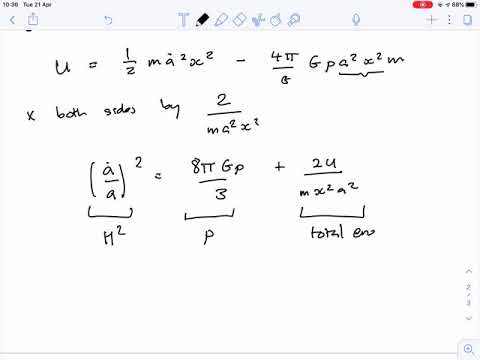 10:36 Tue 21 Apr
88%
U = 1/2 m ȧ² x² - 4π/6 G ρ a² x² m
x both sides by 2/(m a² x²)
(ȧ/a)² = 8π G ρ/3 + 2U/(m x² a²)
H² ρ total ene
2
/
3